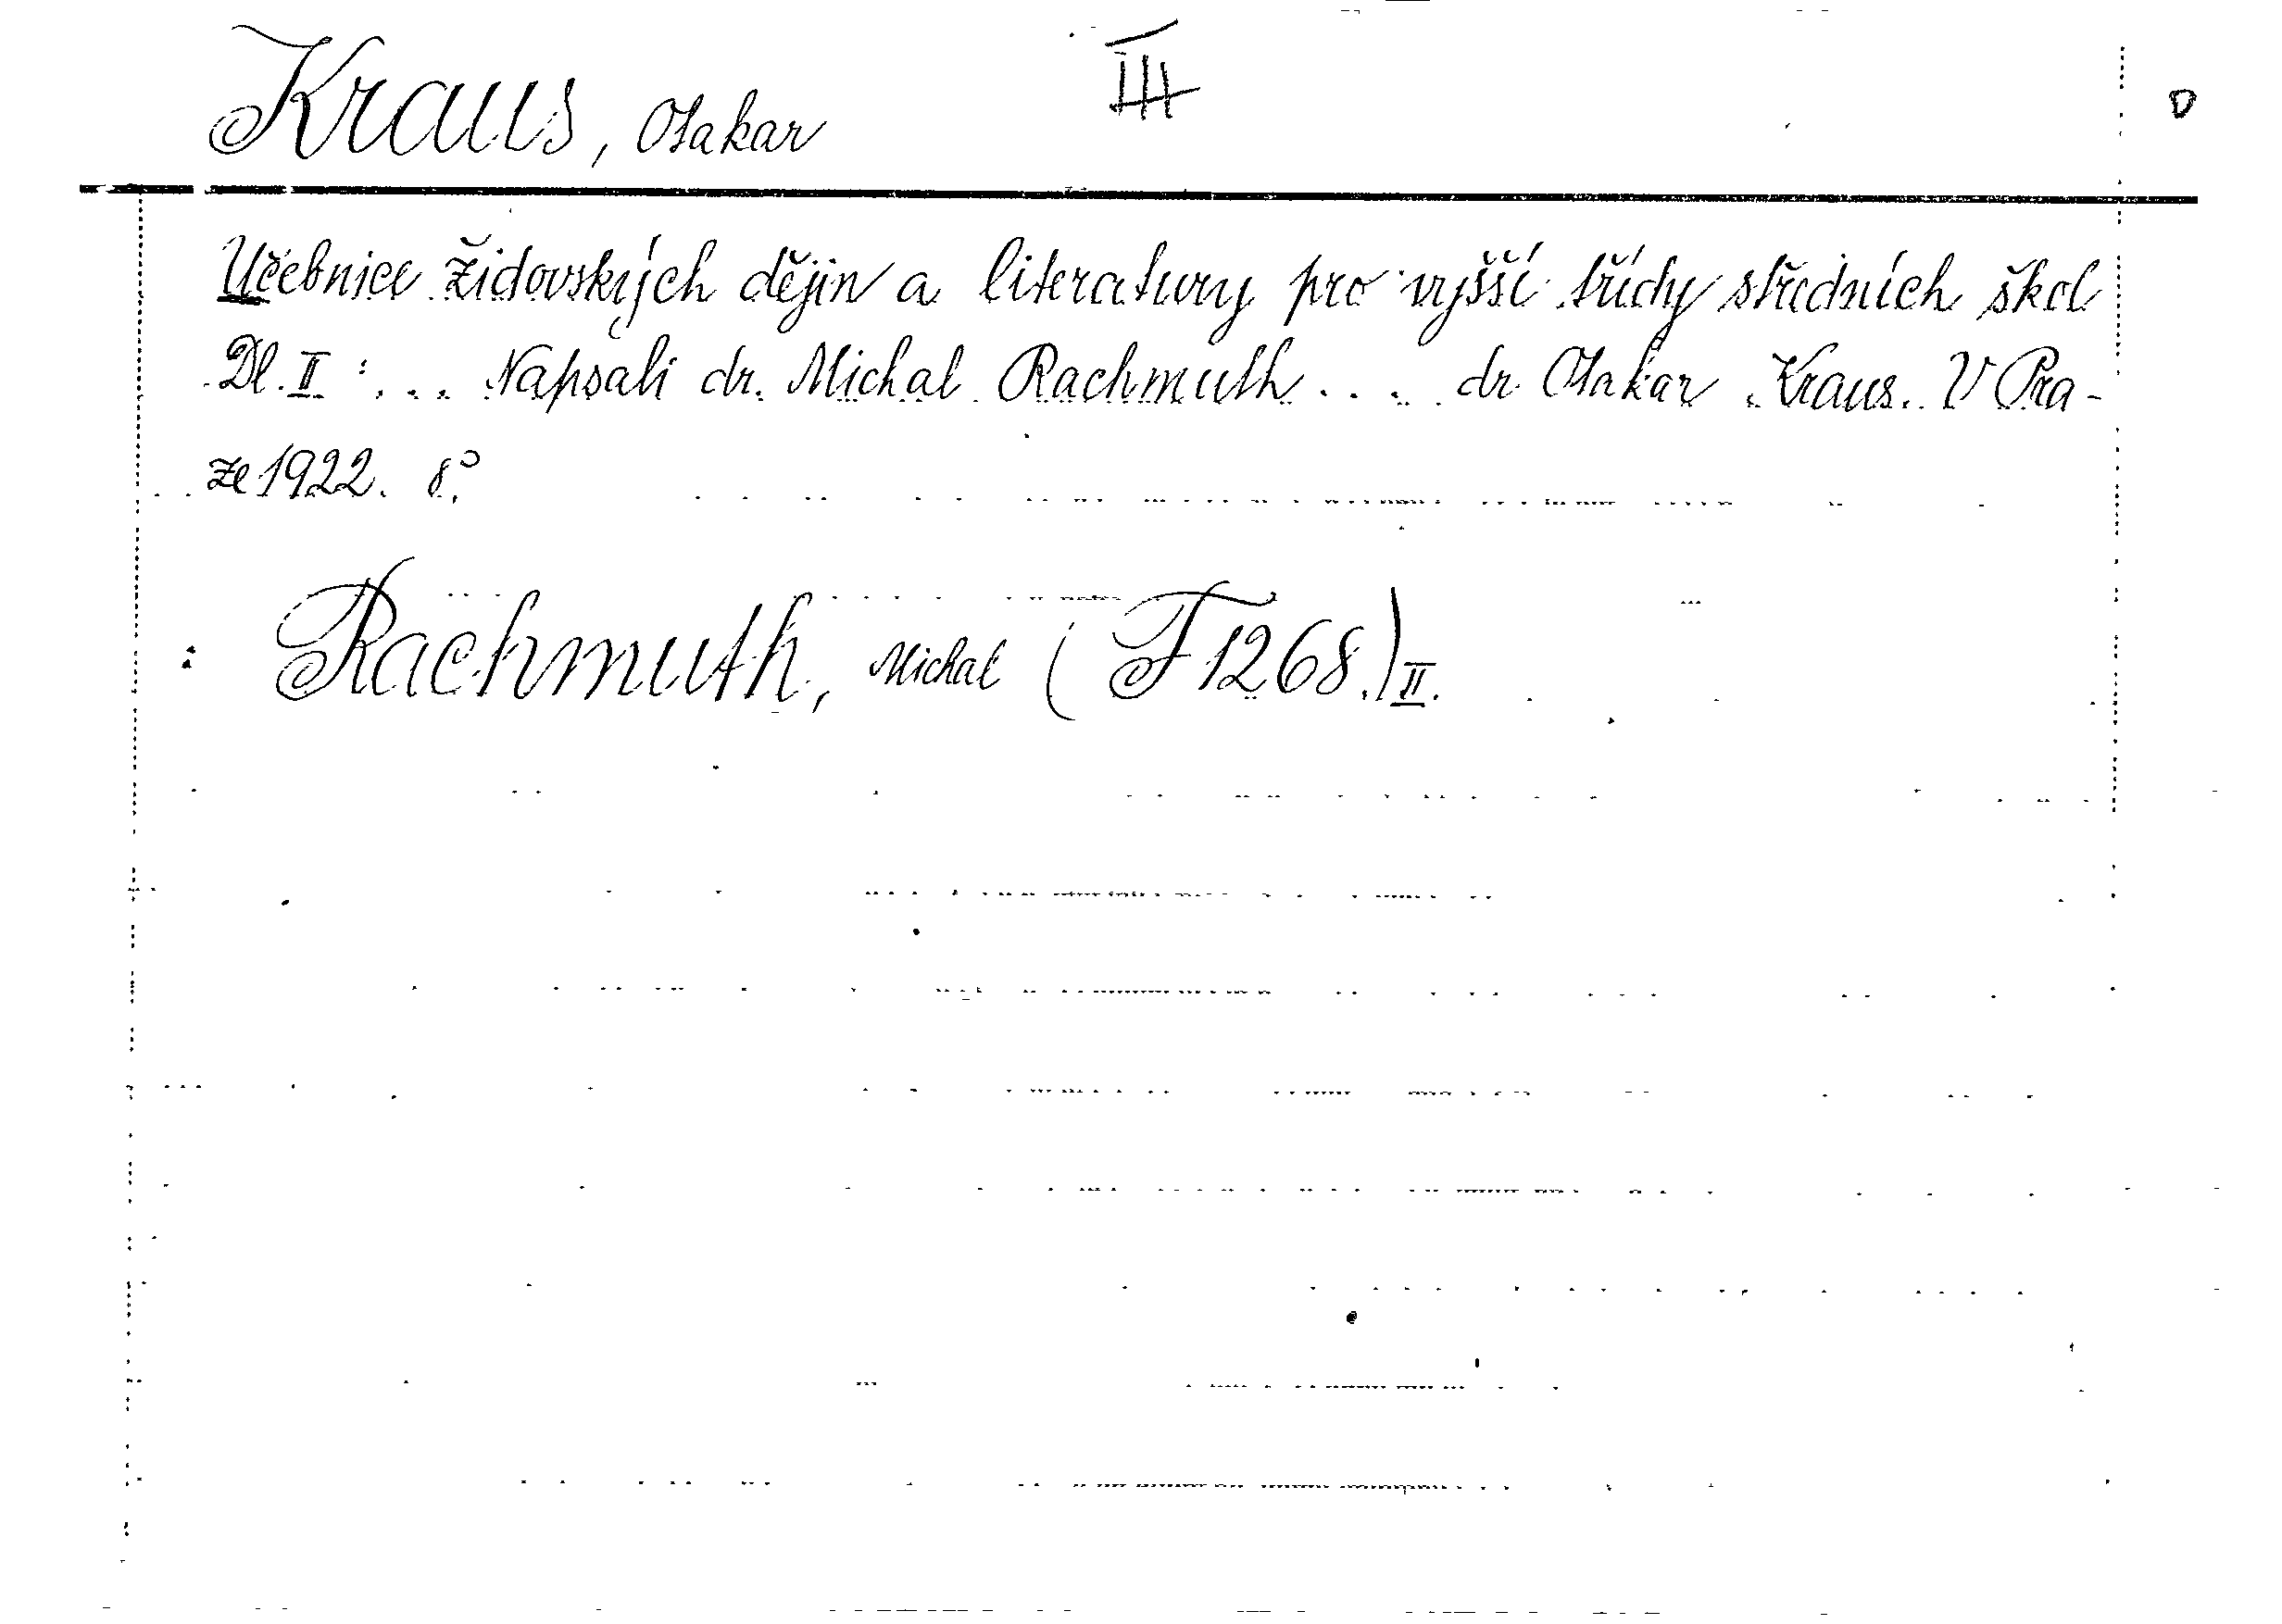 Kraus, Otakar III D
Učebnice židovských dějin a literatury pro vyšší třídy středních škol
Dl. II : ... Napsali dr. Michal Rachmuth ... dr. Otakar Kraus. V Pra-
ze 1922. 8°.
: Rachmuth, Michal (F 1268.) II.